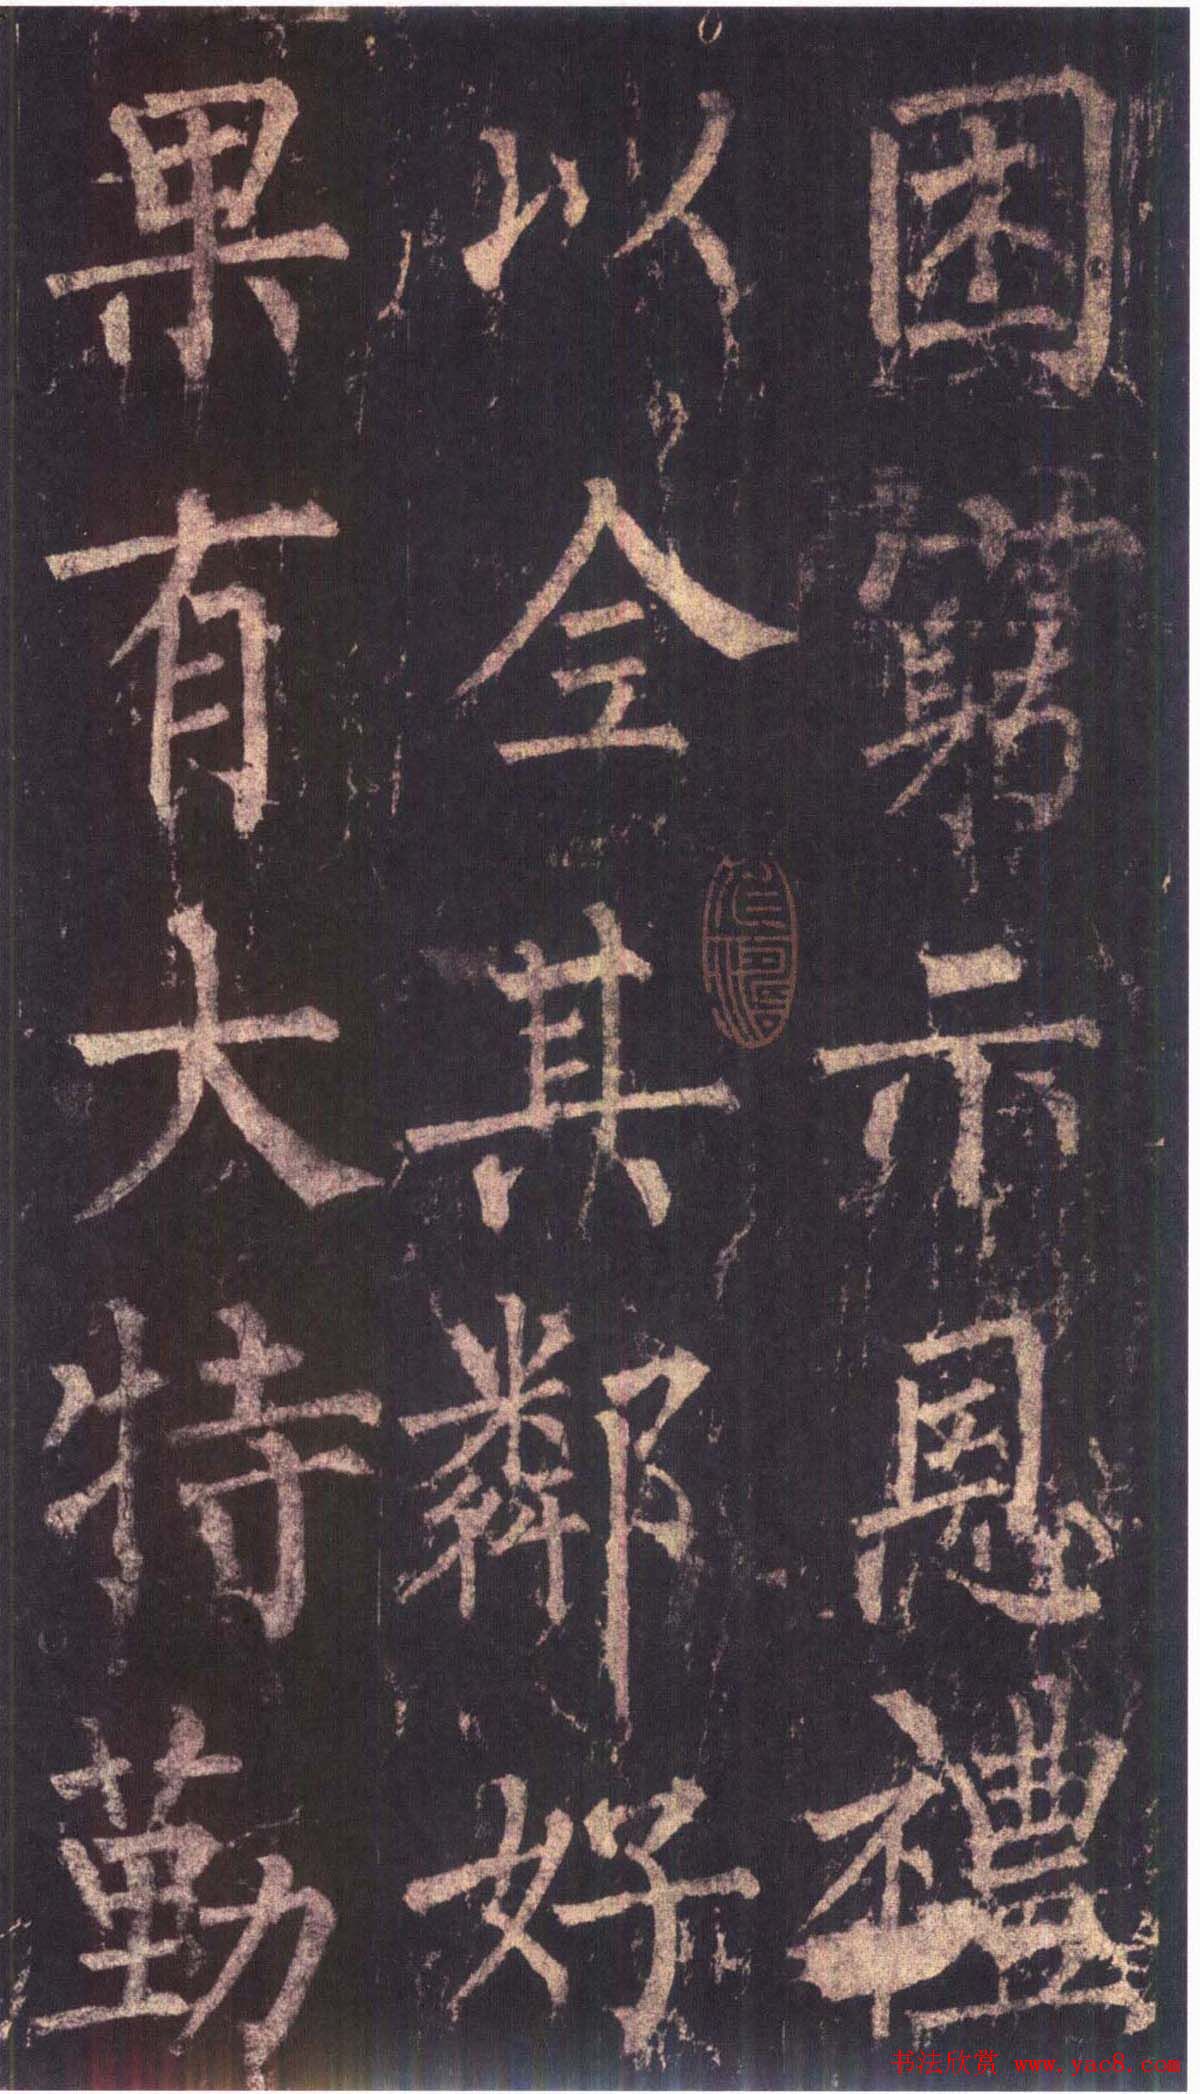 困窮示恩禮
以全其鄰好
果有大特勤
书法欣赏 www.yac8.com